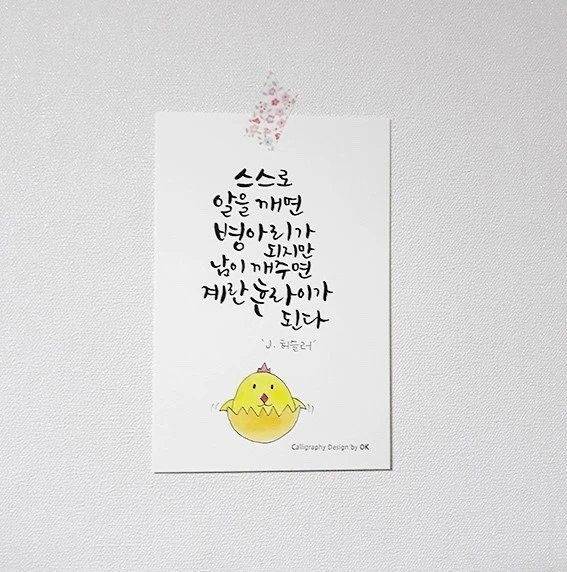 스스로
알을 깨면
병아리가
되지만
남이 깨주면
계란후라이가
된다
'J. 허슬러'
Calligraphy Design by OK